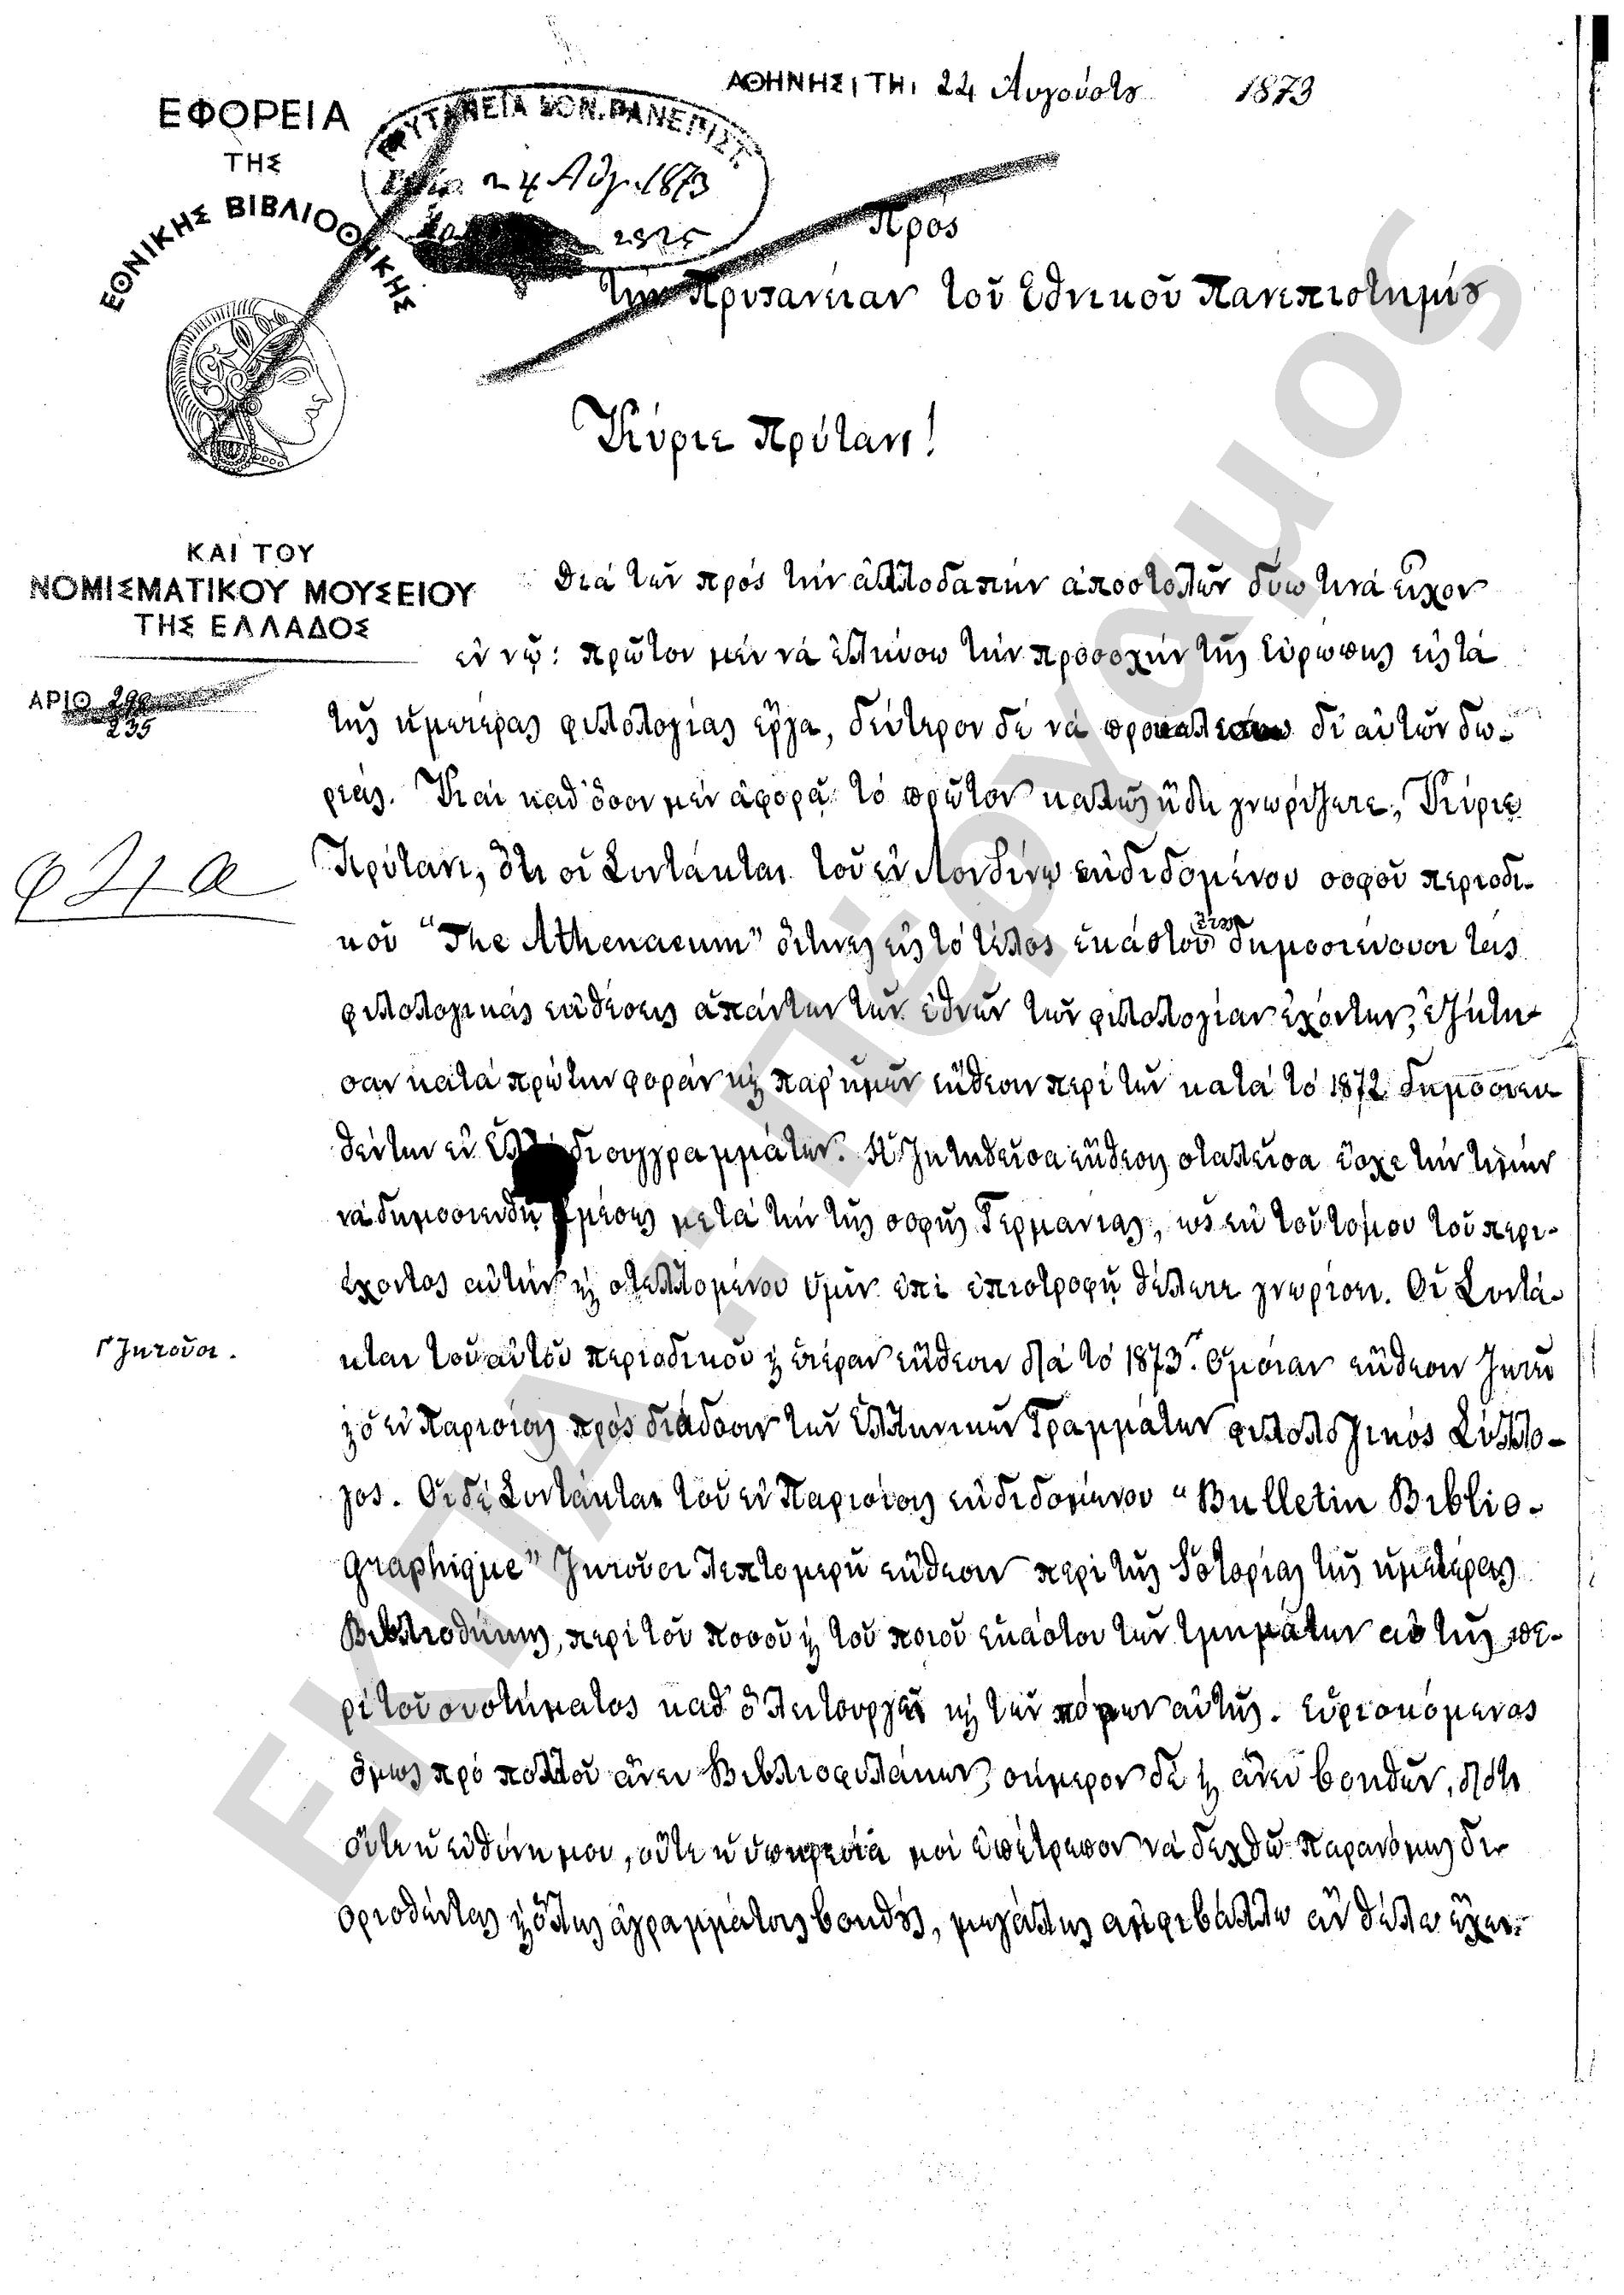 ΑΘΗΝΗΣΙ ΤΗι 24 Αυγούστου 1873
ΕΦΟΡΕΙΑ
ΤΗΣ
ΕΘΝΙΚΗΣ ΒΙΒΛΙΟΘΗΚΗΣ
ΠΡΥΤΑΝΕΙΑ ΕΘΝ. ΠΑΝΕΠΙΣΤ.
24 Αὐγ. 1873
Πρός
τὴν Πρυτανείαν τοῦ Ἐθνικοῦ Πανεπιστημίου
Κύριε Πρύτανι!
ΚΑΙ ΤΟΥ
ΝΟΜΙΣΜΑΤΙΚΟΥ ΜΟΥΣΕΙΟΥ
ΤΗΣ ΕΛΛΑΔΟΣ
ΑΡΙΘ.
235
Διά τῶν πρός τήν ἀλλοδαπήν ἀποστολῶν δύω τινά εἶχον
ἐν νῷ: πρῶτον μέν νά ἑλκύσω τήν προσοχήν τῆς Εὐρώπης εἰς τά
τῆς ἡμετέρας φιλολογίας ἔργα, δεύτερον δέ νά προκαλέσω δι' αὐτῶν δω-
ρεάς. Καί καθ' ὅσον μέν ἀφορᾷ τό πρῶτον καλῶς ἤδη γνωρίζετε, Κύριε
Πρύτανι, ὅτι οἱ Συντάκται τοῦ ἐν Λονδίνῳ ἐκδιδομένου σοφοῦ περιοδι-
κοῦ "The Athenaeum" οἵτινες εἰς τό τέλος ἑκάστου ἔτους δημοσιεύουσι τάς
φιλολογικάς ἐκθέσεις ἁπάντων τῶν ἐθνῶν τῶν φιλολογίαν ἐχόντων, ἐζήτη-
σαν κατά πρώτην φοράν καί παρ' ἡμῶν ἔκθεσιν περί τῶν κατά τό 1872 δημοσιευ
θέντων ἐν Ἑλλάδι συγγραμμάτων. Ἡ ζητηθεῖσα ἔκθεσις σταλεῖσα ἔσχε τήν τιμήν
νά δημοσιευθῇ ἀμέσως μετά τήν τῆς σοφῆς Γερμανίας, ὡς ἐκ τοῦ τόμου τοῦ περι-
έχοντος αὐτήν καί στελλομένου ὑμῖν ἐπί ἐπιστροφῇ θέλετε γνωρίσει. Οἱ Συντά-
κται τοῦ αὐτοῦ περιοδικοῦ καί ἑτέραν ἔκθεσιν διά τό 1873. Ὁμοίαν ἔκθεσιν ζητεῖ
Γ ζητοῦσι.
καί ὁ ἐν Παρισίοις πρός διάδοσιν τῶν Ἑλληνικῶν Γραμμάτων φιλολογικός Σύλλο-
γος. Οἱ δέ Συντάκται τοῦ ἐν Παρισίοις ἐκδιδομένου "Bulletin Biblio-
graphique" ζητοῦσι λεπτομερῆ ἔκθεσιν περί τῆς Ἱστορίας τῆς ἡμετέρας
Βιβλιοθήκης, περί τοῦ ποσοῦ καί τοῦ ποιοῦ ἑκάστου τῶν τμημάτων αὐτῆς, πε-
ρί τοῦ συστήματος καθ' ὅ λειτουργεῖ καί τῶν πόρων αὐτῆς. Εὑρισκόμενος
ὅμως πρό πολλοῦ ἄνευ Βιβλιοφυλάκων, σήμερον δέ καί ἄνευ βοηθῶν, διότι
οὔτε ἡ εὐθύνη μου, οὔτε ἡ ὑπηρεσία μοί ἐπέτρεπον νά δεχθῶ παρανόμως δι-
ορισθέντας καί ὅλως ἀγραμμάτους βοηθούς, μεγάλως ἀμφιβάλλω ἄν θέλω ἔχει
ΕΚΠΑ. : Πέργαμος